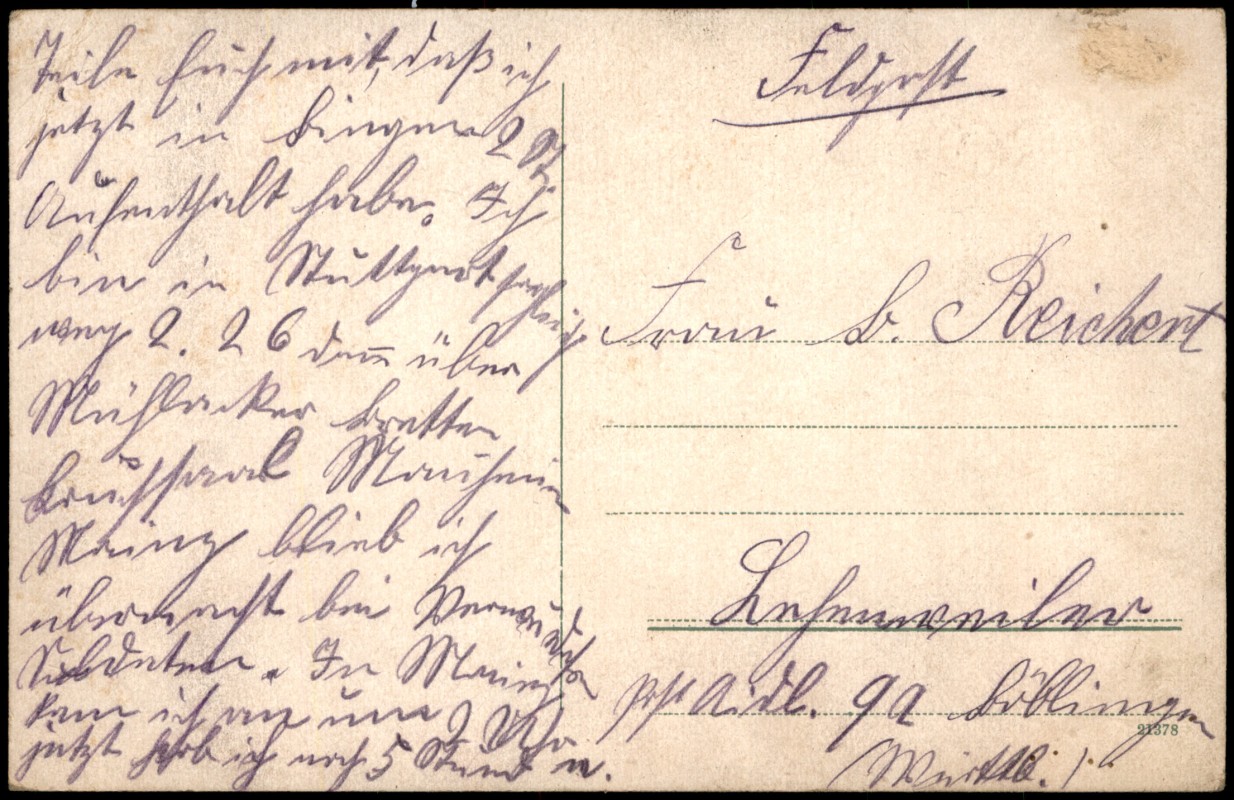 Teile Euch mit, daß ich
jetzt in Bingen 2 St
Aufenthalt habe. Ich
bin in Stuttgart
weg 2. 26 dann über
Mühlacker Bretten
Bruchsaal Mannheim
Mainz blieb ich
übernacht bei Verwundeten
Soldaten. In Mainz
kam ich an um 9 Uhr
jetzt hab ich noch 5 Stund u.
Feldpost
Frau B. Reichert
Lehenweiler
Post Aidl. OA Böblingen
(Württb.)
21378